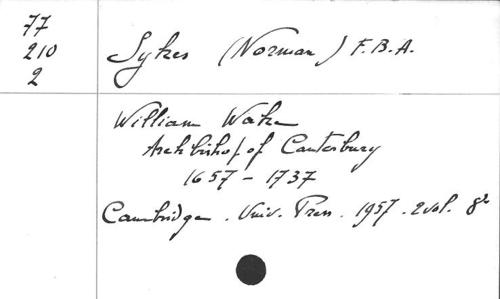 77
210
2
Sykes (Norman) F.B.A.
William Wake
Archbishop of Canterbury
1657 - 1737
Cambridge. Univ. Press. 1957. 2 vol. 8°